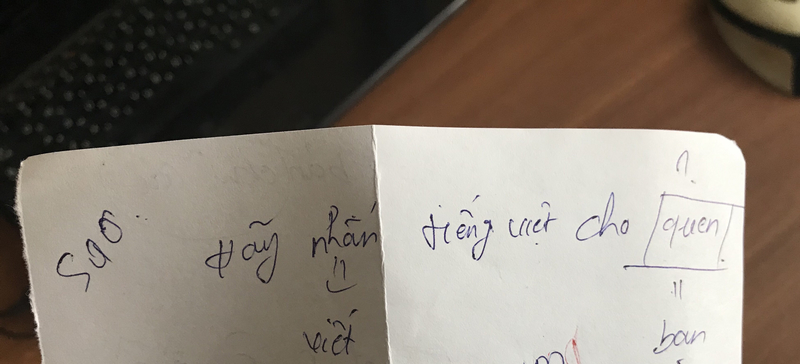 sao hãy nhắn tiếng việt cho quen
viết bạn